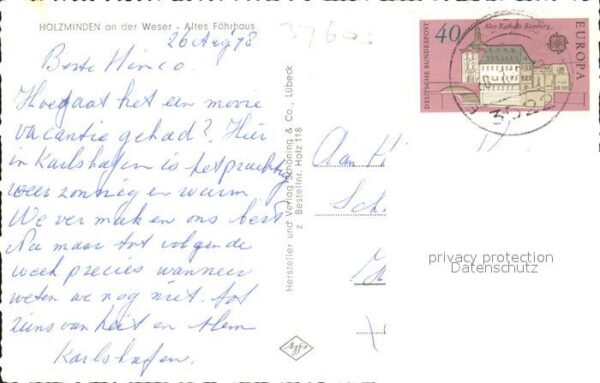 HOLZMINDEN an der Weser - Altes Fährhaus
26 Aug '78
Beste Hinco.
Hoe gaat het een mooie
vacantie gehad? Hier
in Karlshafen is het prachtig
weer zonnig en warm
We vermaken ons best
Nu maar tot volgende
week precies wanneer
weten we nog niet. Tot
ziens van heit en Mem
Karlshafen.
Hersteller und Verlag Schöning & Co., Lübeck
z Bestellnr. Holz 118
DEUTSCHE BUNDESPOST
40
Altes Rathaus Bamberg
EUROPA
Aan H
Sch
privacy protection
Datenschutz